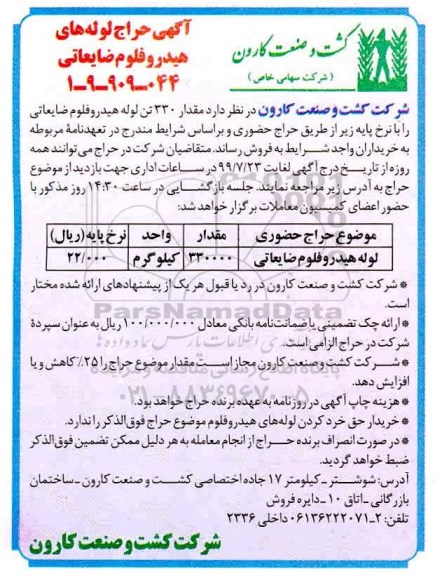 کشت و صنعت کارون
(شرکت سهامی خاص)
آگهی حراج لوله‌های
هیدروفلوم ضایعاتی
۱-۹-۹۰۹-۰۴۴
شرکت کشت و صنعت کارون در نظر دارد مقدار ۳۳۰ تن لوله هیدروفلوم ضایعاتی
را با نرخ پایه زیر از طریق حراج حضوری و براساس شرایط مندرج در تعهدنامهٔ مربوطه
به خریداران واجد شرایط به فروش رساند. متقاضیان شرکت در حراج می‌توانند همه
روزه از تاریخ درج آگهی لغایت ۹۹/۷/۲۳ در ساعات اداری جهت بازدید از موضوع
حراج به آدرس زیر مراجعه نمایند. جلسه بازگشایی در ساعت ۱۴:۳۰ روز مذکور با
حضور اعضای کمیسیون معاملات برگزار خواهد شد:
موضوع حراج حضوری مقدار واحد نرخ پایه (ریال)
لوله هیدروفلوم ضایعاتی ۳۳۰۰۰۰ کیلوگرم ۲۲/۰۰۰
* شرکت کشت و صنعت کارون در رد یا قبول هر یک از پیشنهادهای ارائه شده مختار
است.
* ارائه چک تضمینی یا ضمانت‌نامه بانکی معادل ۱۰۰/۰۰۰/۰۰۰ ریال به عنوان سپردهٔ
شرکت در حراج الزامی است.
* شرکت کشت و صنعت کارون مجاز است مقدار موضوع حراج را ۲۵٪ کاهش و یا
افزایش دهد.
* هزینه چاپ آگهی در روزنامه به عهده برنده حراج خواهد بود.
* خریدار حق خرد کردن لوله‌های هیدروفلوم موضوع حراج فوق‌الذکر را ندارد.
* در صورت انصراف برنده حراج از انجام معامله به هر دلیل ممکن تضمین فوق‌الذکر
ضبط خواهد گردید.
آدرس: شوشتر ـ کیلومتر ۱۷ جاده اختصاصی کشت و صنعت کارون ـ ساختمان
بازرگانی ـ اتاق ۱۰ ـ دایره فروش
تلفن: ۲-۰۶۱۳۶۲۲۲۰۷۱ داخلی ۲۳۳۶
شرکت کشت و صنعت کارون
ParsNamadData
۰۲۱-۸۸۳۴۹۶۷۰-۵